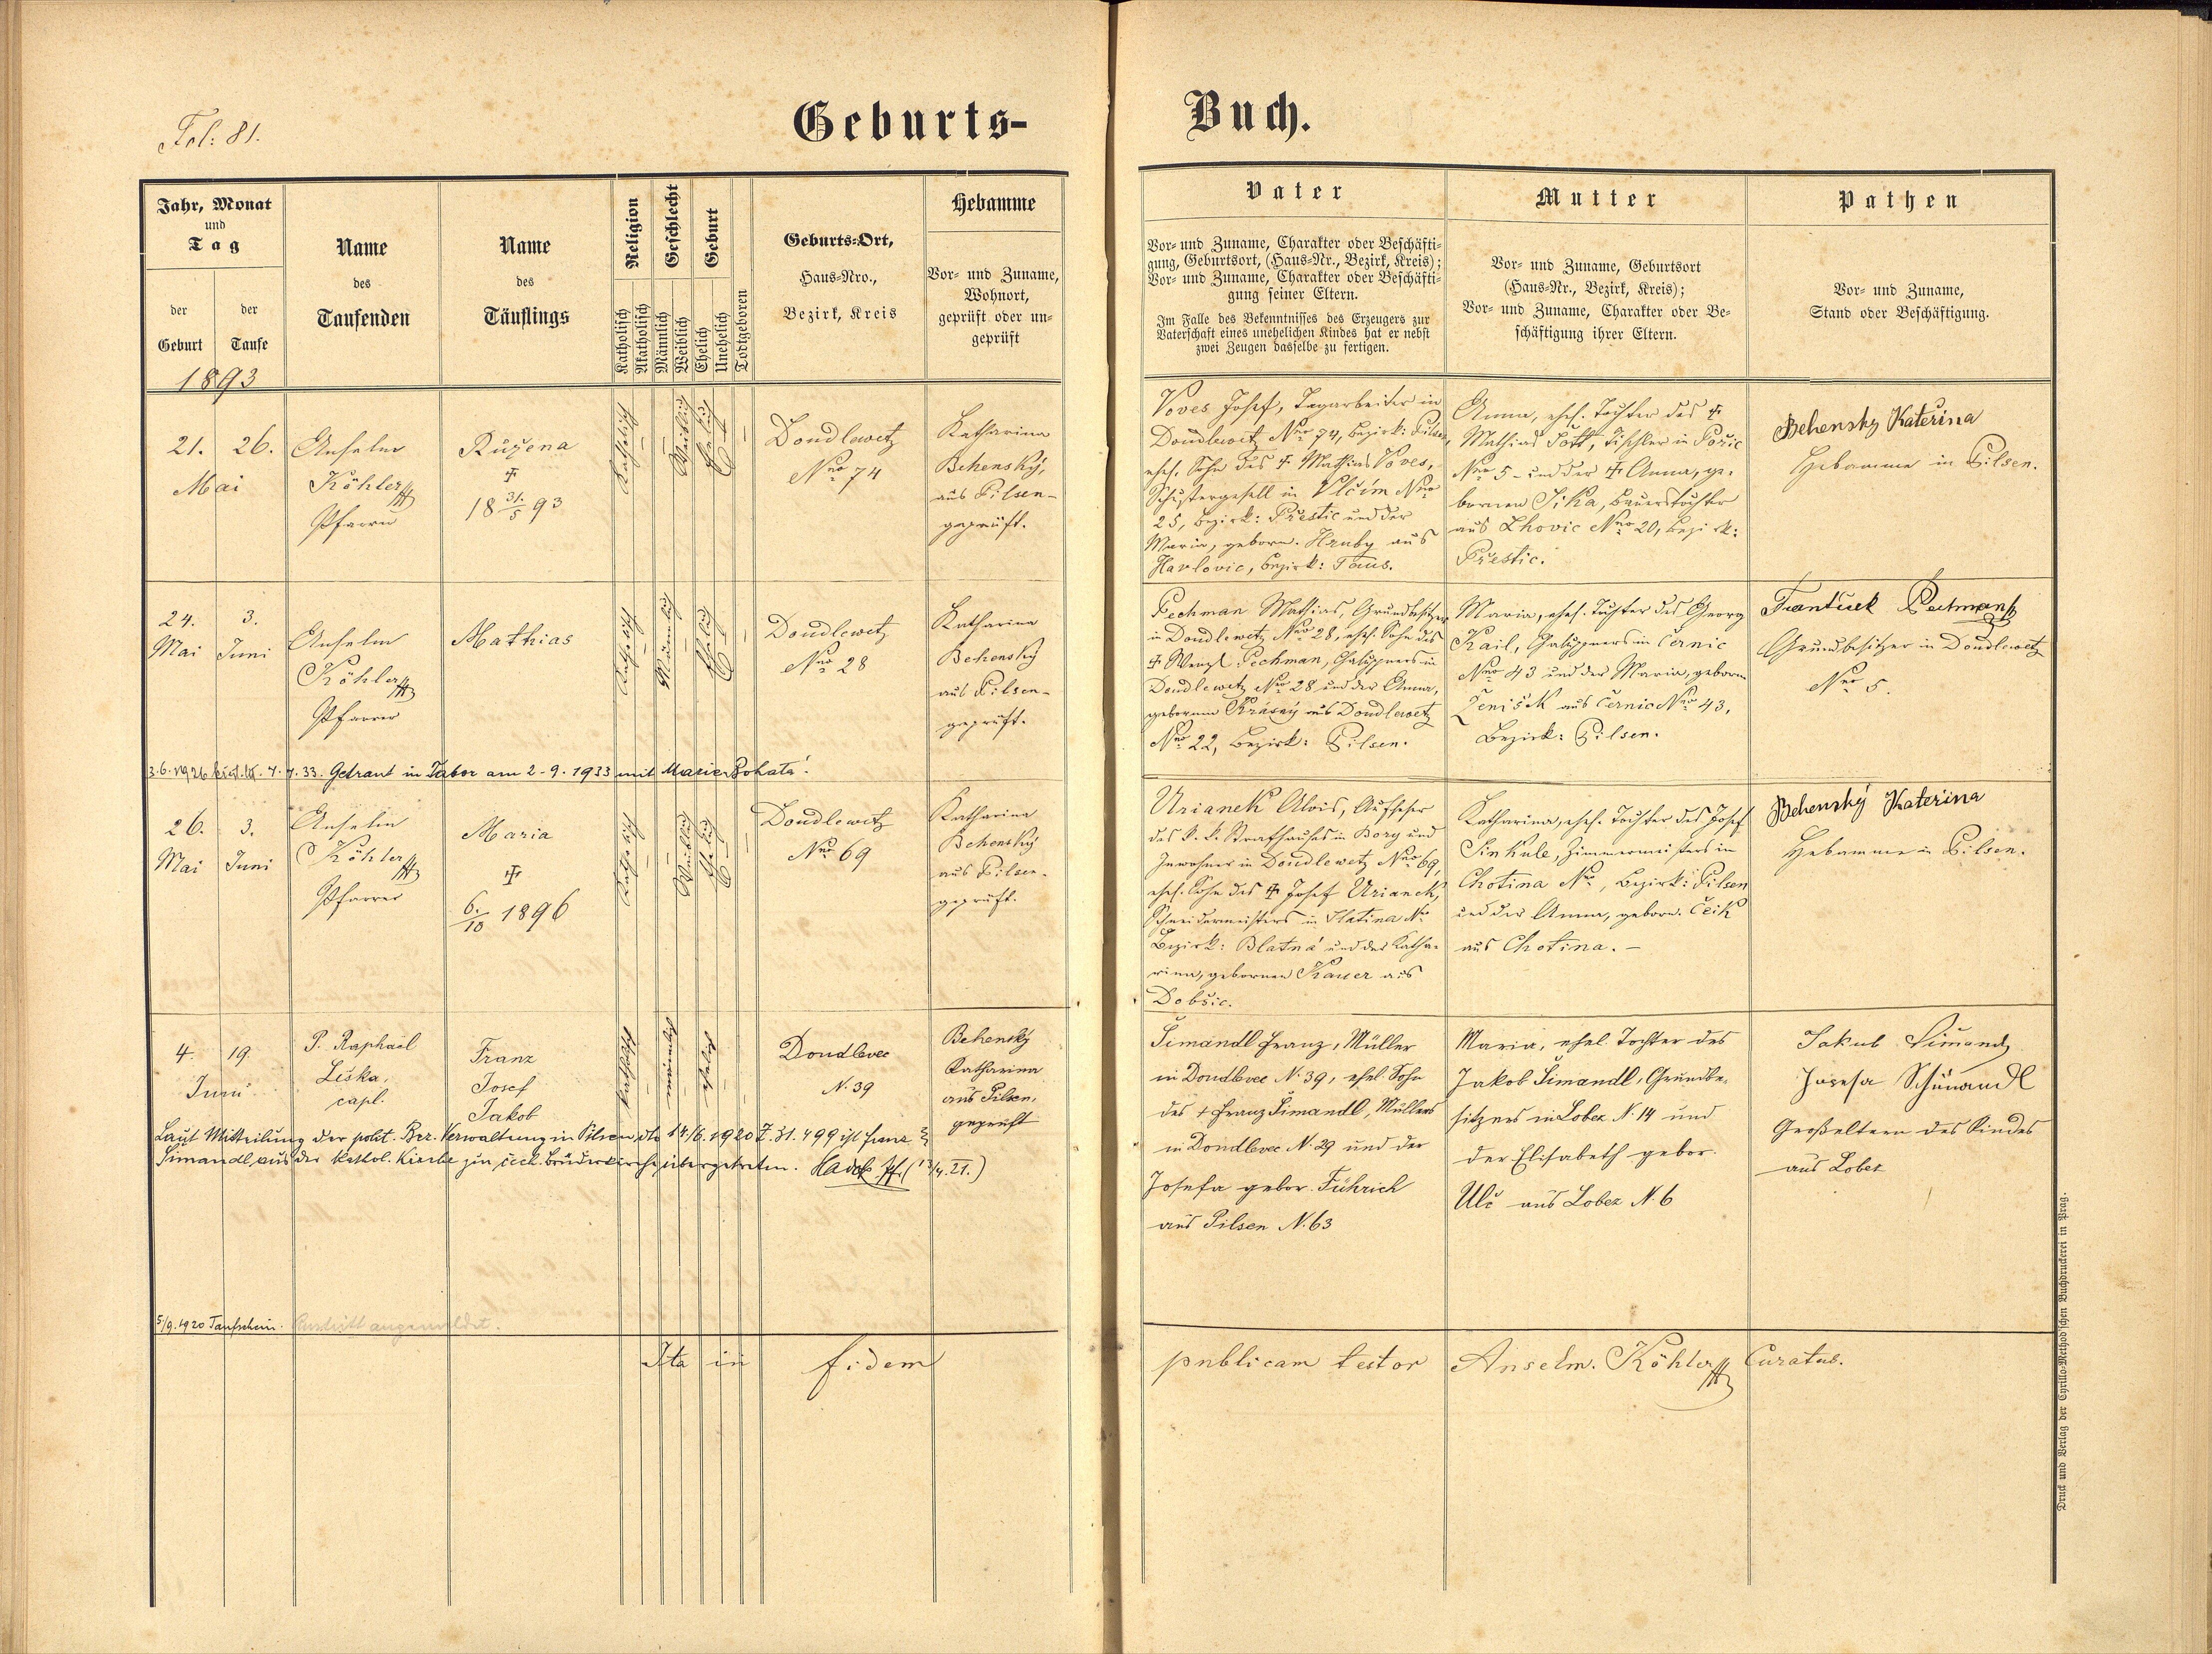 Fol: 81.
Geburts-
Buch.
Jahr, Monat
und
Tag
der
Geburt
der
Taufe
1893
Name
des
Taufenden
Name
des
Täuflings
Religion
Katholisch
Akatholisch
Geschlecht
Männlich
Weiblich
Geburt
Ehelich
Unehelich
Todtgeboren
Geburts-Ort,
Haus-Nro.,
Bezirk, Kreis
Hebamme
Vor- und Zuname,
Wohnort,
geprüft oder un-
geprüft
Vater
Vor- und Zuname, Charakter oder Beschäfti-
gung, Geburtsort, (Haus-Nr., Bezirk, Kreis);
Vor- und Zuname, Charakter oder Beschäfti-
gung seiner Eltern.
Im Falle des Bekenntnisses des Erzeugers zur
Vaterschaft eines unehelichen Kindes hat er nebst
zwei Zeugen dasselbe zu fertigen.
Mutter
Vor- und Zuname, Geburtsort
(Haus-Nr., Bezirk, Kreis);
Vor- und Zuname, Charakter oder Be-
schäftigung ihrer Eltern.
Pathen
Vor- und Zuname,
Stand oder Beschäftigung.
21. 26.
Mai
Anselm
Köhler
Pfarrer
Ružena
✠
18 31./5 93
Katholisch
–
–
Weiblich
Ehelich
–
–
Doudlewetz
Nro 74
Katharina
Behenský,
aus Pilsen-
geprüft.
Voves Josef, Tagarbeiter in
Doudlewetz Nro 74, Bezirk: Pilsen,
ehel. Sohn des ✠ Mathias Voves,
Schustergesell in Vlčim Nro
25, Bezirk: Přestic und der
Maria, geborn. Hruby aus
Havlovic, Bezirk: Taus.
Anna, ehel. Tochter des ✠
Mathias Tott, Tischler in Pořic
Nro 5 und der ✠ Anna, ge-
bornen Sika, Bauerstochter
aus Lhovic Nro 20, Bezirk:
Přestic.
Behensky Kateřina
Hebamme in Pilsen.
24. 3.
Mai Juni
Anselm
Köhler
Pfarrer
Mathias
Katholisch
–
Männlich
–
Ehelich
–
–
Doudlewetz
Nro 28
Katharina
Behenský
aus Pilsen-
geprüft.
Pechman Mathias, Grundbesitzer
in Doudlewetz Nro 28, ehel. Sohn des
✠ Wenzl Pechman, Chaluppners in
Doudlewetz Nro 28 und der Anna,
gebornen Krásný aus Doudlewetz
Nro 22, Bezirk: Pilsen.
Maria, ehel. Tochter des Georg
Kail, Chaluppners in Černic
Nro 43 und der Maria, geborn.
Ženíšk aus Černic Nro 43,
Bezirk: Pilsen.
Frantisek Pechman
Grundbesitzer in Doudlewetz
Nro 5.
3.6.1926 7.7.33. Getraut in Tabor am 2-9.1933 mit Marie Bohatá.
26. 3.
Mai Juni
Anselm
Köhler
Pfarrer
Maria
✠
6./10 1896
Katholisch
–
–
Weiblich
Ehelich
–
–
Doudlewitz
Nro 69
Katharina
Behenský
aus Pilsen.
geprüft.
Urianek Alois, Aufseher
des k. k. Strafhauses in Bory und
Inwohner in Doudlewetz Nro 69,
ehel. Sohn des ✠ Josef Urianek,
Schneidermeisters in Slatina Nro
Bezirk: Blatná und der Katha-
rina, gebornen Kauer aus
Dobšic.
Katharina, ehel. Tochter des Josef
Sinkule, Zimmermeisters in
Chotina Nro, Bezirk: Pilsen
und der Anna, geborn. Čeik
aus Chotina. –
Behenský Kateřina
Hebamme in Pilsen.
4. 19.
Juni
P. Raphael
Liška,
capl.
Franz
Josef
Jakob
katholisch
–
männlich
–
ehelich
–
–
Doudlevec
N. 39
Behenský
Katharina
aus Pilsen,
geprüft
Šimandl Franz, Müller
in Doudlevec N. 39, ehel. Sohn
des + Franz Šimandl, Müllers
in Doudlevec N. 39 und der
Josefa gebor. Führich
aus Pilsen N. 63
Maria, ehel. Tochter des
Jakob Šimandl, Grundbe-
sitzers in Lobez N. 14 und
der Elisabeth gebor.
Ulč aus Lobez N. 6
Jakub Šimandl
Josefa Schimandl
Großeltern des Kindes
aus Lobez
Laut Mitteilung der polit. Bez. Verwaltung in Pilsen dto 14/6.1920 Z. 31.499 ist Franz
Šimandl aus der kathol. Kirche zur čech. Brüderkirche übergetreten. (13/4.21.)
5/9.1920 Taufschein. Austritt angemeldet.
Ita in fidem publicam testor Anselm. Köhler Curatus.
Druck und Verlag der Cyrillo-Method'schen Buchdruckerei in Prag.